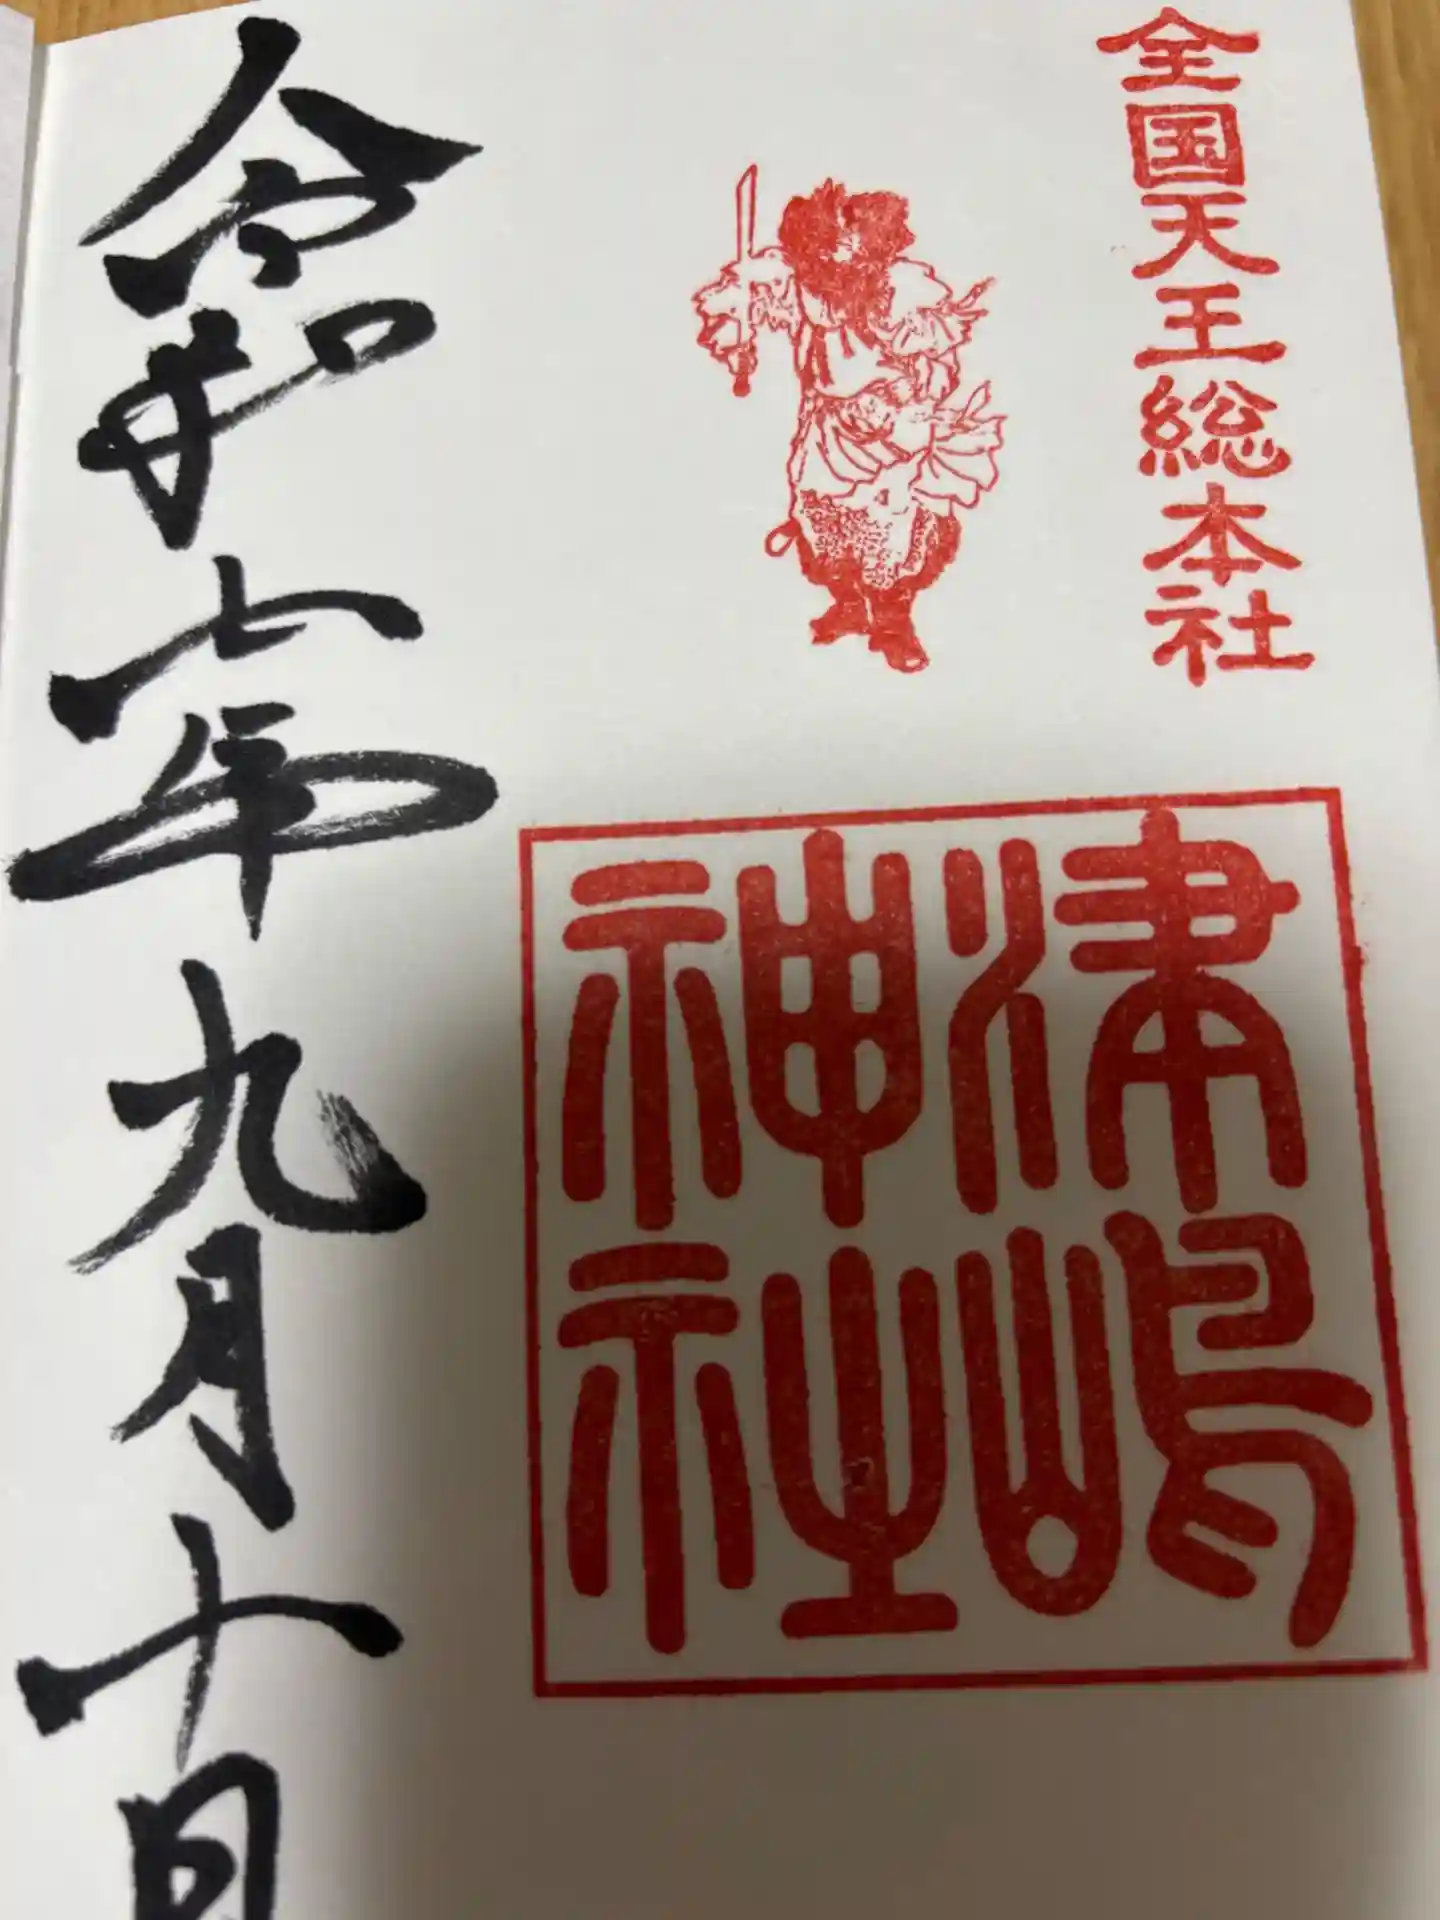 全国天王総本社
津嶋
神社
令和七年九月十日